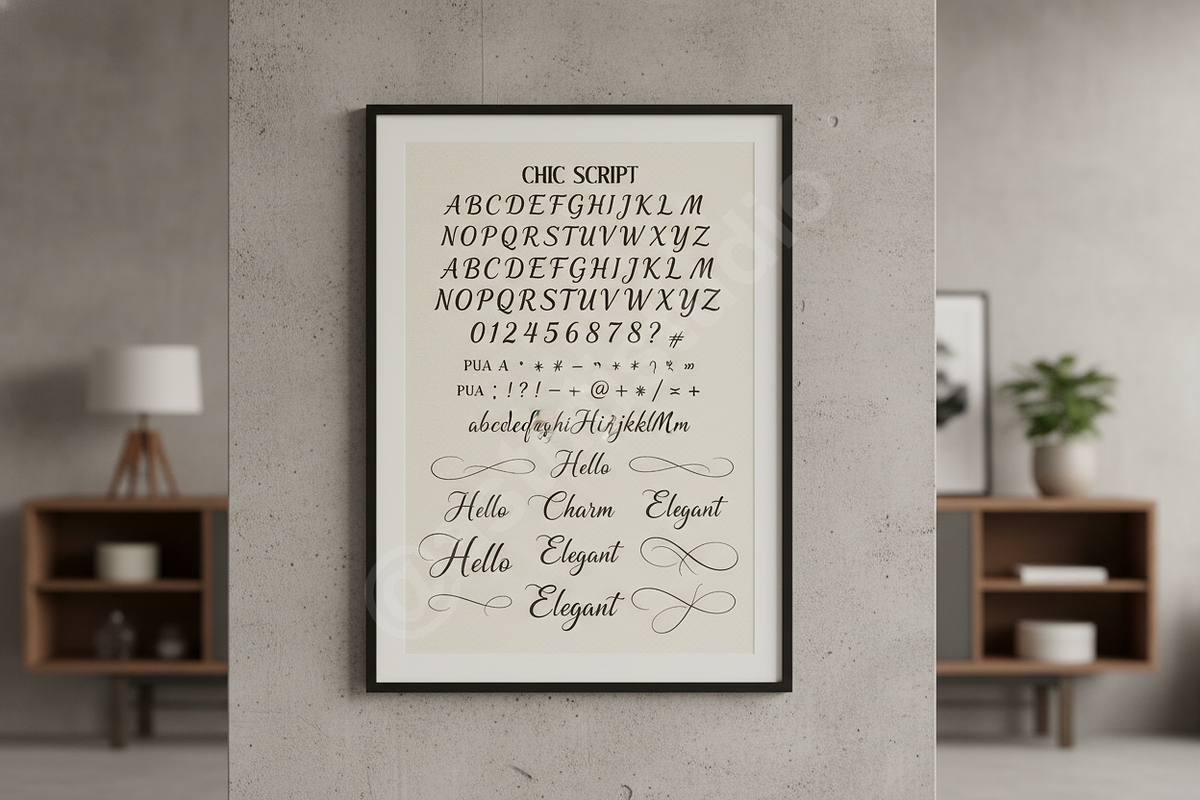 CHIC SCRIPT
ABCDEFGHIJKLM
NOPQRSTUVWXYZ
ABCDEFGHIJKLM
NOPQRSTUVWXYZ
012456878? #
PUA A
PUA : !?! — + @ + * / ≍ +
Hello
Hello Charm Elegant
Hello Elegant
Elegant